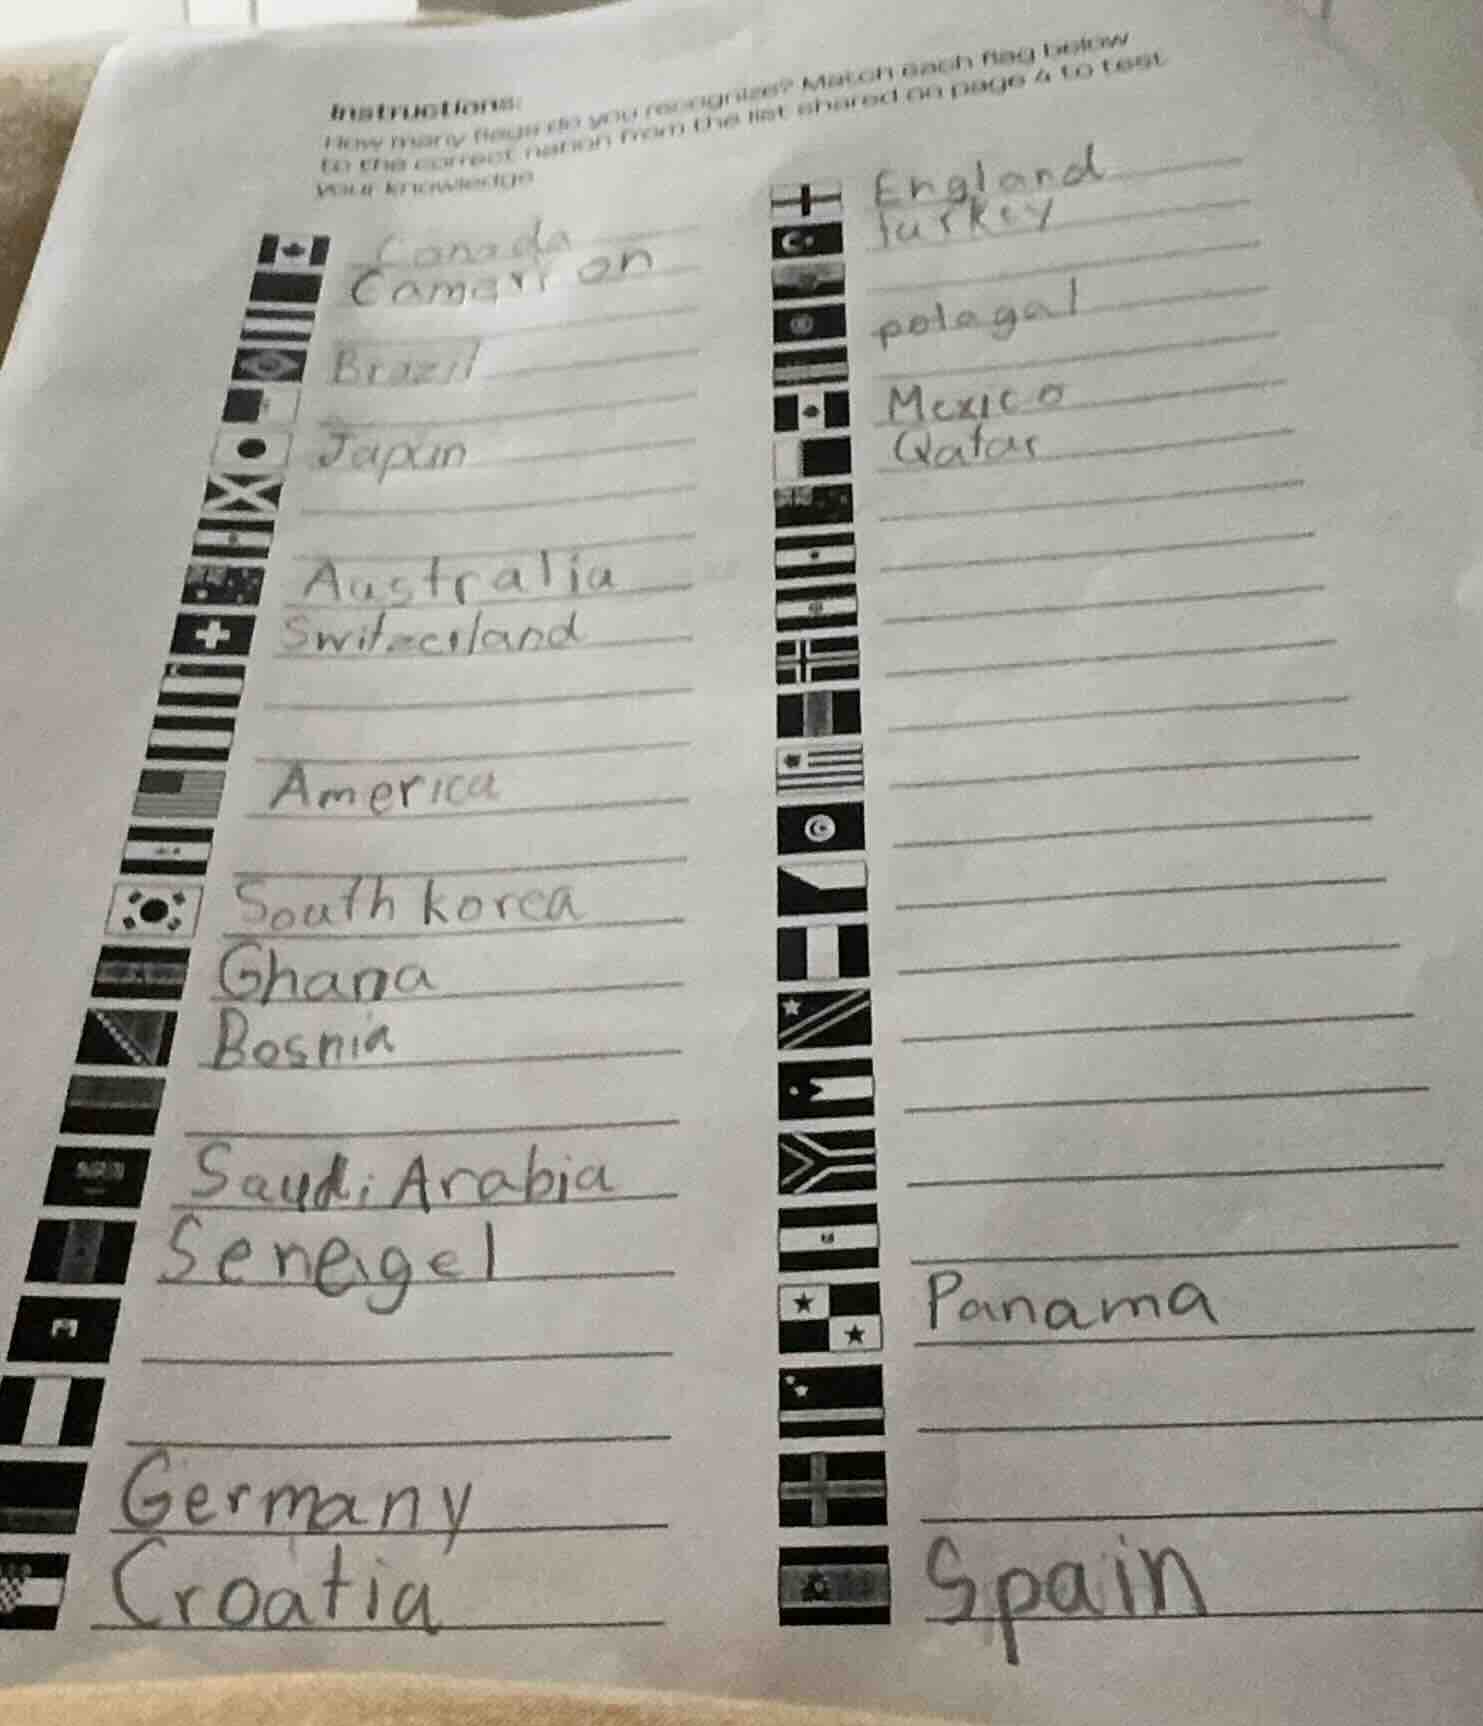 Instructions:
How many flags do you recognize? Match each flag below
to the correct nation from the list shared on page 4 to test
your knowledge
Canada
Camerron
Brazil
Japan
Australia
Switzerland
America
South korea
Ghana
Bosnia
Saudi Arabia
Senegel
Germany
Croatia
England
Turkey
potagal
Mexico
Qatar
Panama
Spain